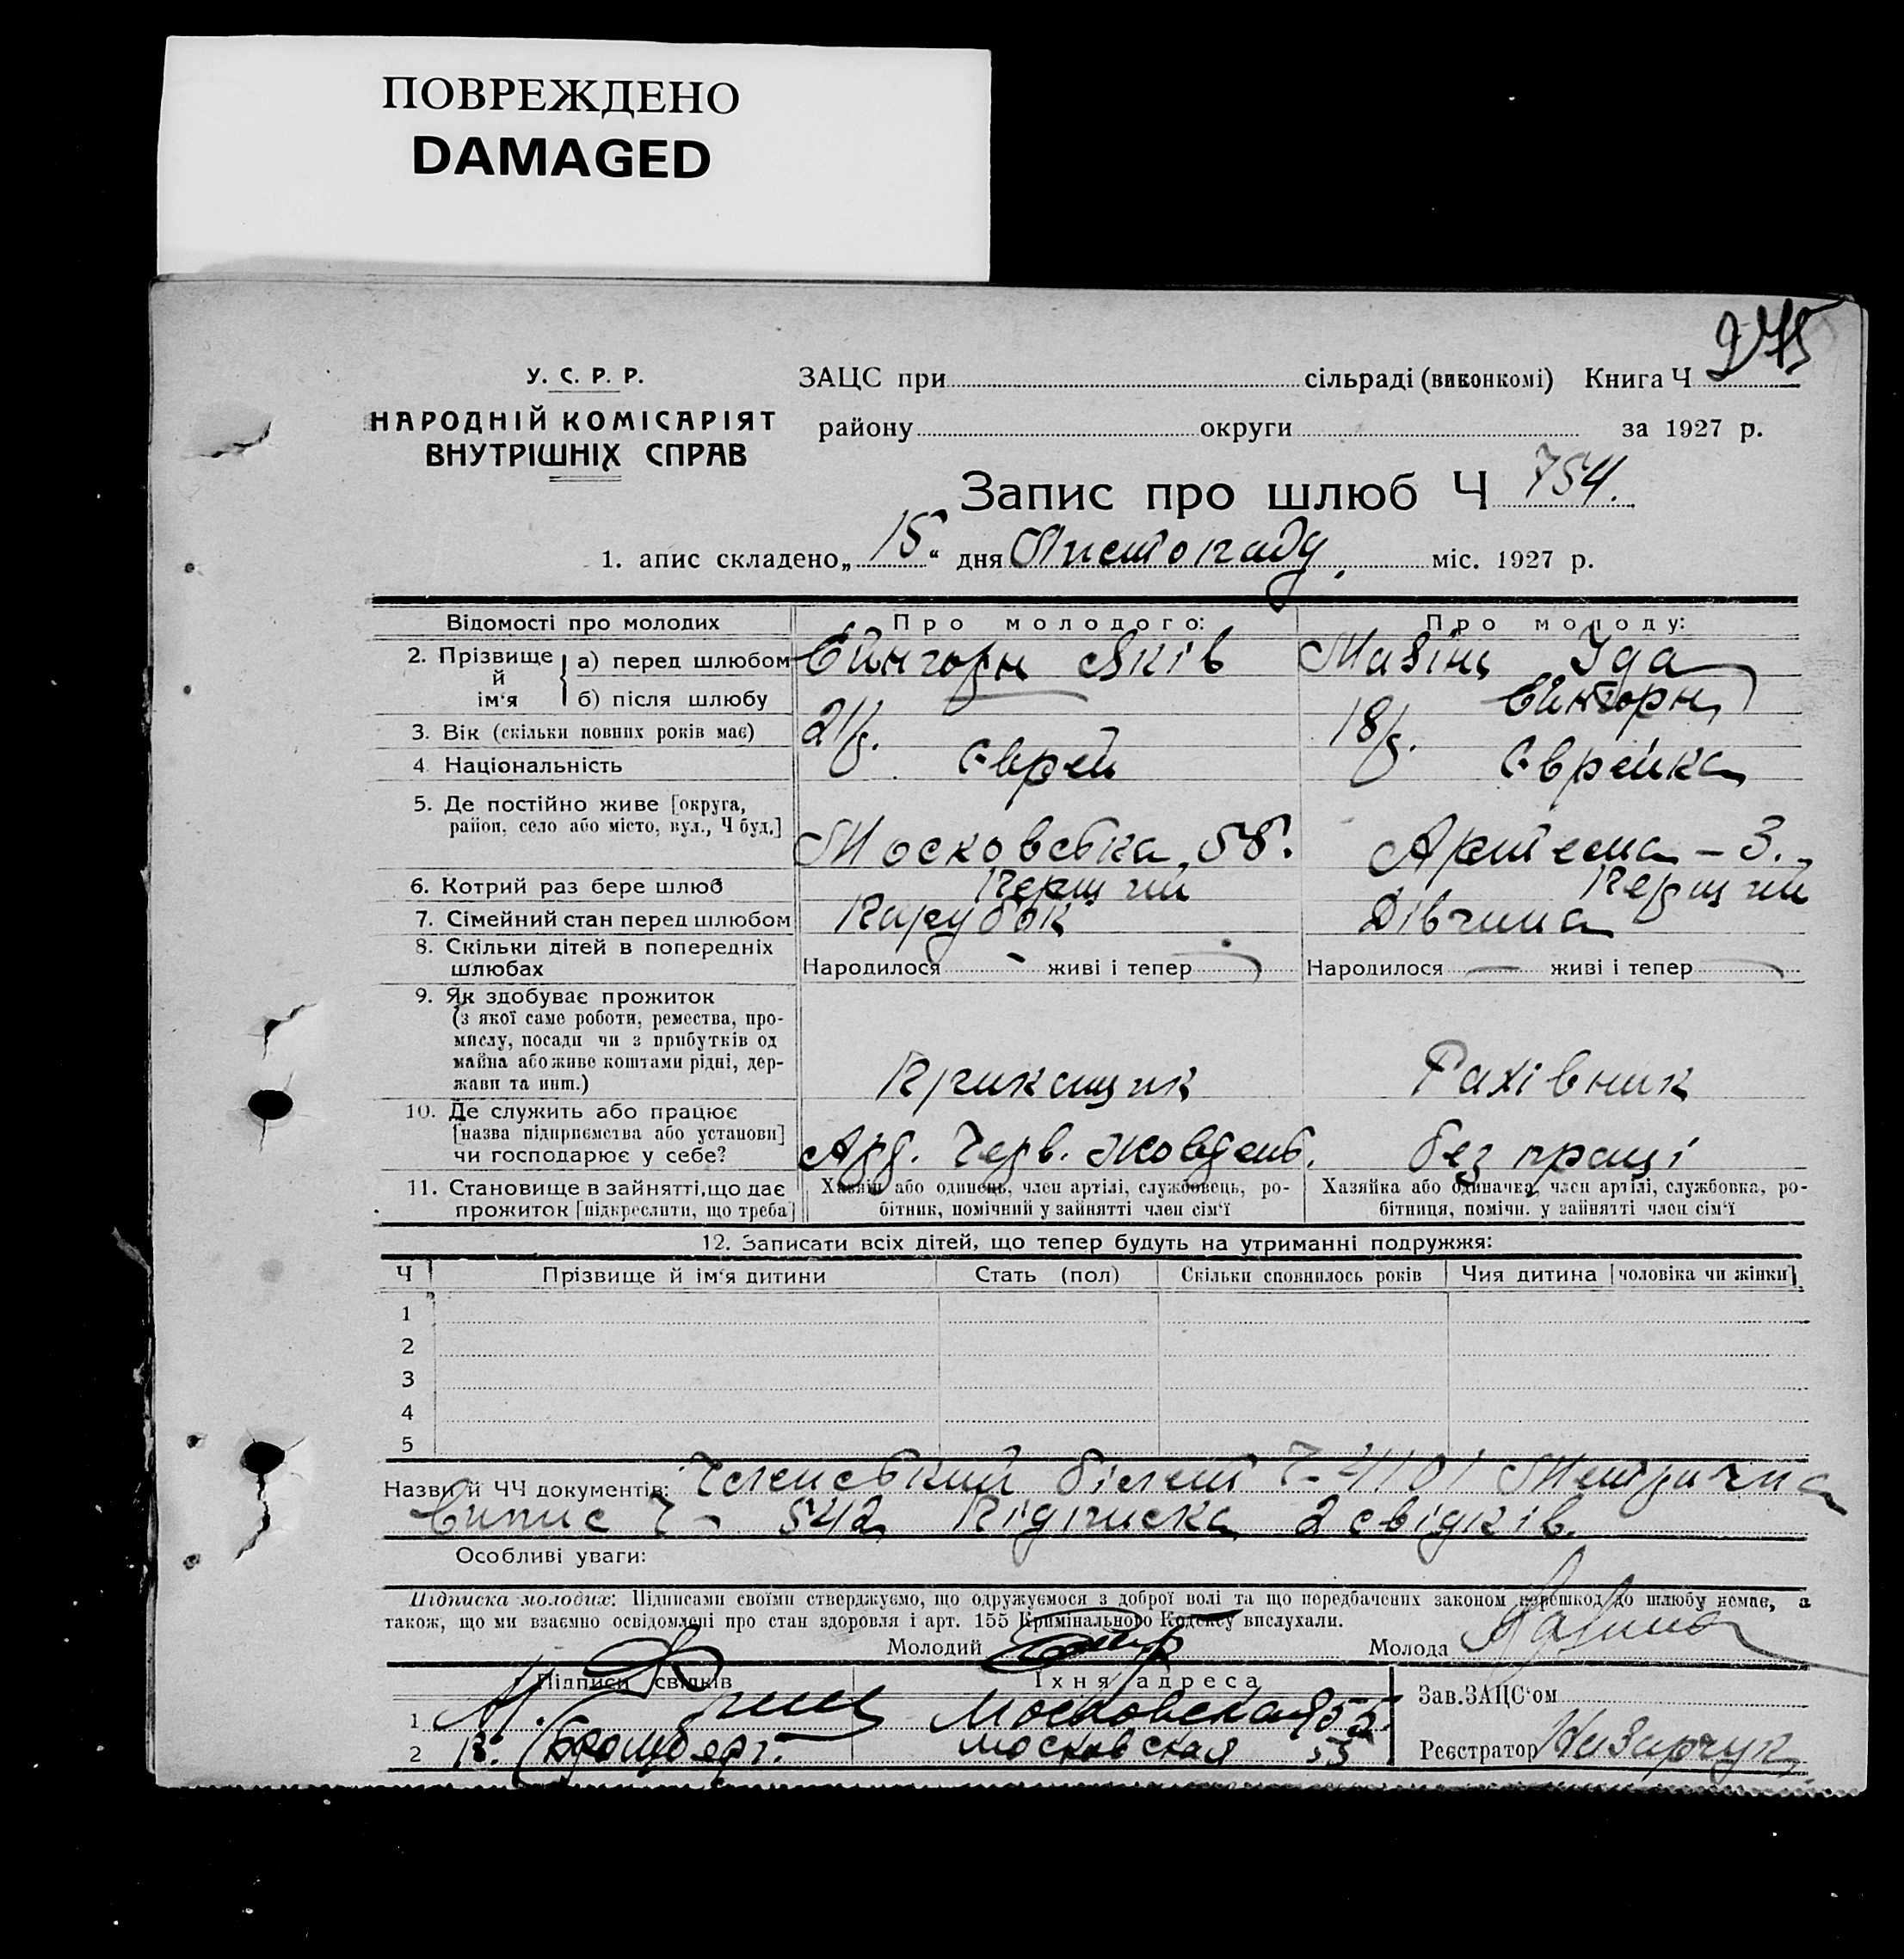 ПОВРЕЖДЕНО
DAMAGED
275
У. С. Р. Р.
НАРОДНІЙ КОМІСАРІЯТ
ВНУТРІШНІХ СПРАВ
ЗАЦС при сільраді (виконкомі) Книга Ч
району округи за 1927 р.
Запис про шлюб Ч 754.
1. апис складено „15" дня Листопаду. міс. 1927 р.
Відомості про молодих Про молодого: Про молоду:
2. Прізвище й ім'я а) перед шлюбом Ейнгорн Яків Ида
б) після шлюбу Ейнгорн
3. Вік (скільки повних років має) 21 18
4. Національність Єврей Єврейка
5. Де постійно живе [округа,
район, село або місто, вул., Ч буд.] Московська 58. Артема – 3.
6. Котрий раз бере шлюб Перший Перший
7. Сімейний стан перед шлюбом Парубок Дівчина
8. Скільки дітей в попередніх
шлюбах Народилося живі і тепер Народилося — живі і тепер
9. Як здобуває прожиток
(з якої саме роботи, ремества, про-
мислу, посади чи з прибутків од
майна або живе коштами рідні, дер-
жави та инш.) Прикащик Рахівник
10. Де служить або працює
[назва підприємства або установи]
чи господарює у себе? Черв. Жовтень. без праці
11. Становище в зайнятті, що дає
прожиток [підкреслити, що треба]
Хазяїн або одинець, член артілі, службовець, ро-
бітник, помічний у зайнятті член сім'ї
Хазяйка або одиначка, член артілі, службовка, ро-
бітниця, помічн. у зайнятті член сім'ї
12. Записати всіх дітей, що тепер будуть на утриманні подружжя:
Ч Прізвище й ім'я дитини Стать (пол) Скільки сповнилось років Чия дитина [чоловіка чи жінки]
1
2
3
4
5
Назви й ЧЧ документів: Членський білет Ч- 4101 Метрична
Випис Ч- 542 Підписка 2 свідків.
Особливі уваги:
Підписка молодих: Підписами своїми стверджуємо, що одружуємося з доброї волі та що передбачених законом перешкод до шлюбу немає, а
також, що ми взаємно освідомлені про стан здоровля і арт. 155 Кримінального Кодексу вислухали.
Молодий Молода
Підписи свідків Їхня адреса
1 Московская 55.
2 Московская 55
Зав. ЗАЦС'ом
Реєстратор Назарчук